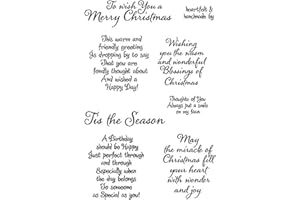 To wish You a
Merry Christmas
heartfelt &
handmade by
This warm and
friendly greeting,
Is dropping by to say
That you are
fondly thought about
And wished a
Happy Day!
Wishing
you the warm
and wonderful
Blessings of
Christmas
Thoughts of You
Always put a smile
on my face
'Tis the Season
A Birthday
should be Happy
Just perfect through
and through
Especially when
the day belongs
To someone
as Special as you!
May
the miracle of
Christmas fill
your heart
with wonder
and joy